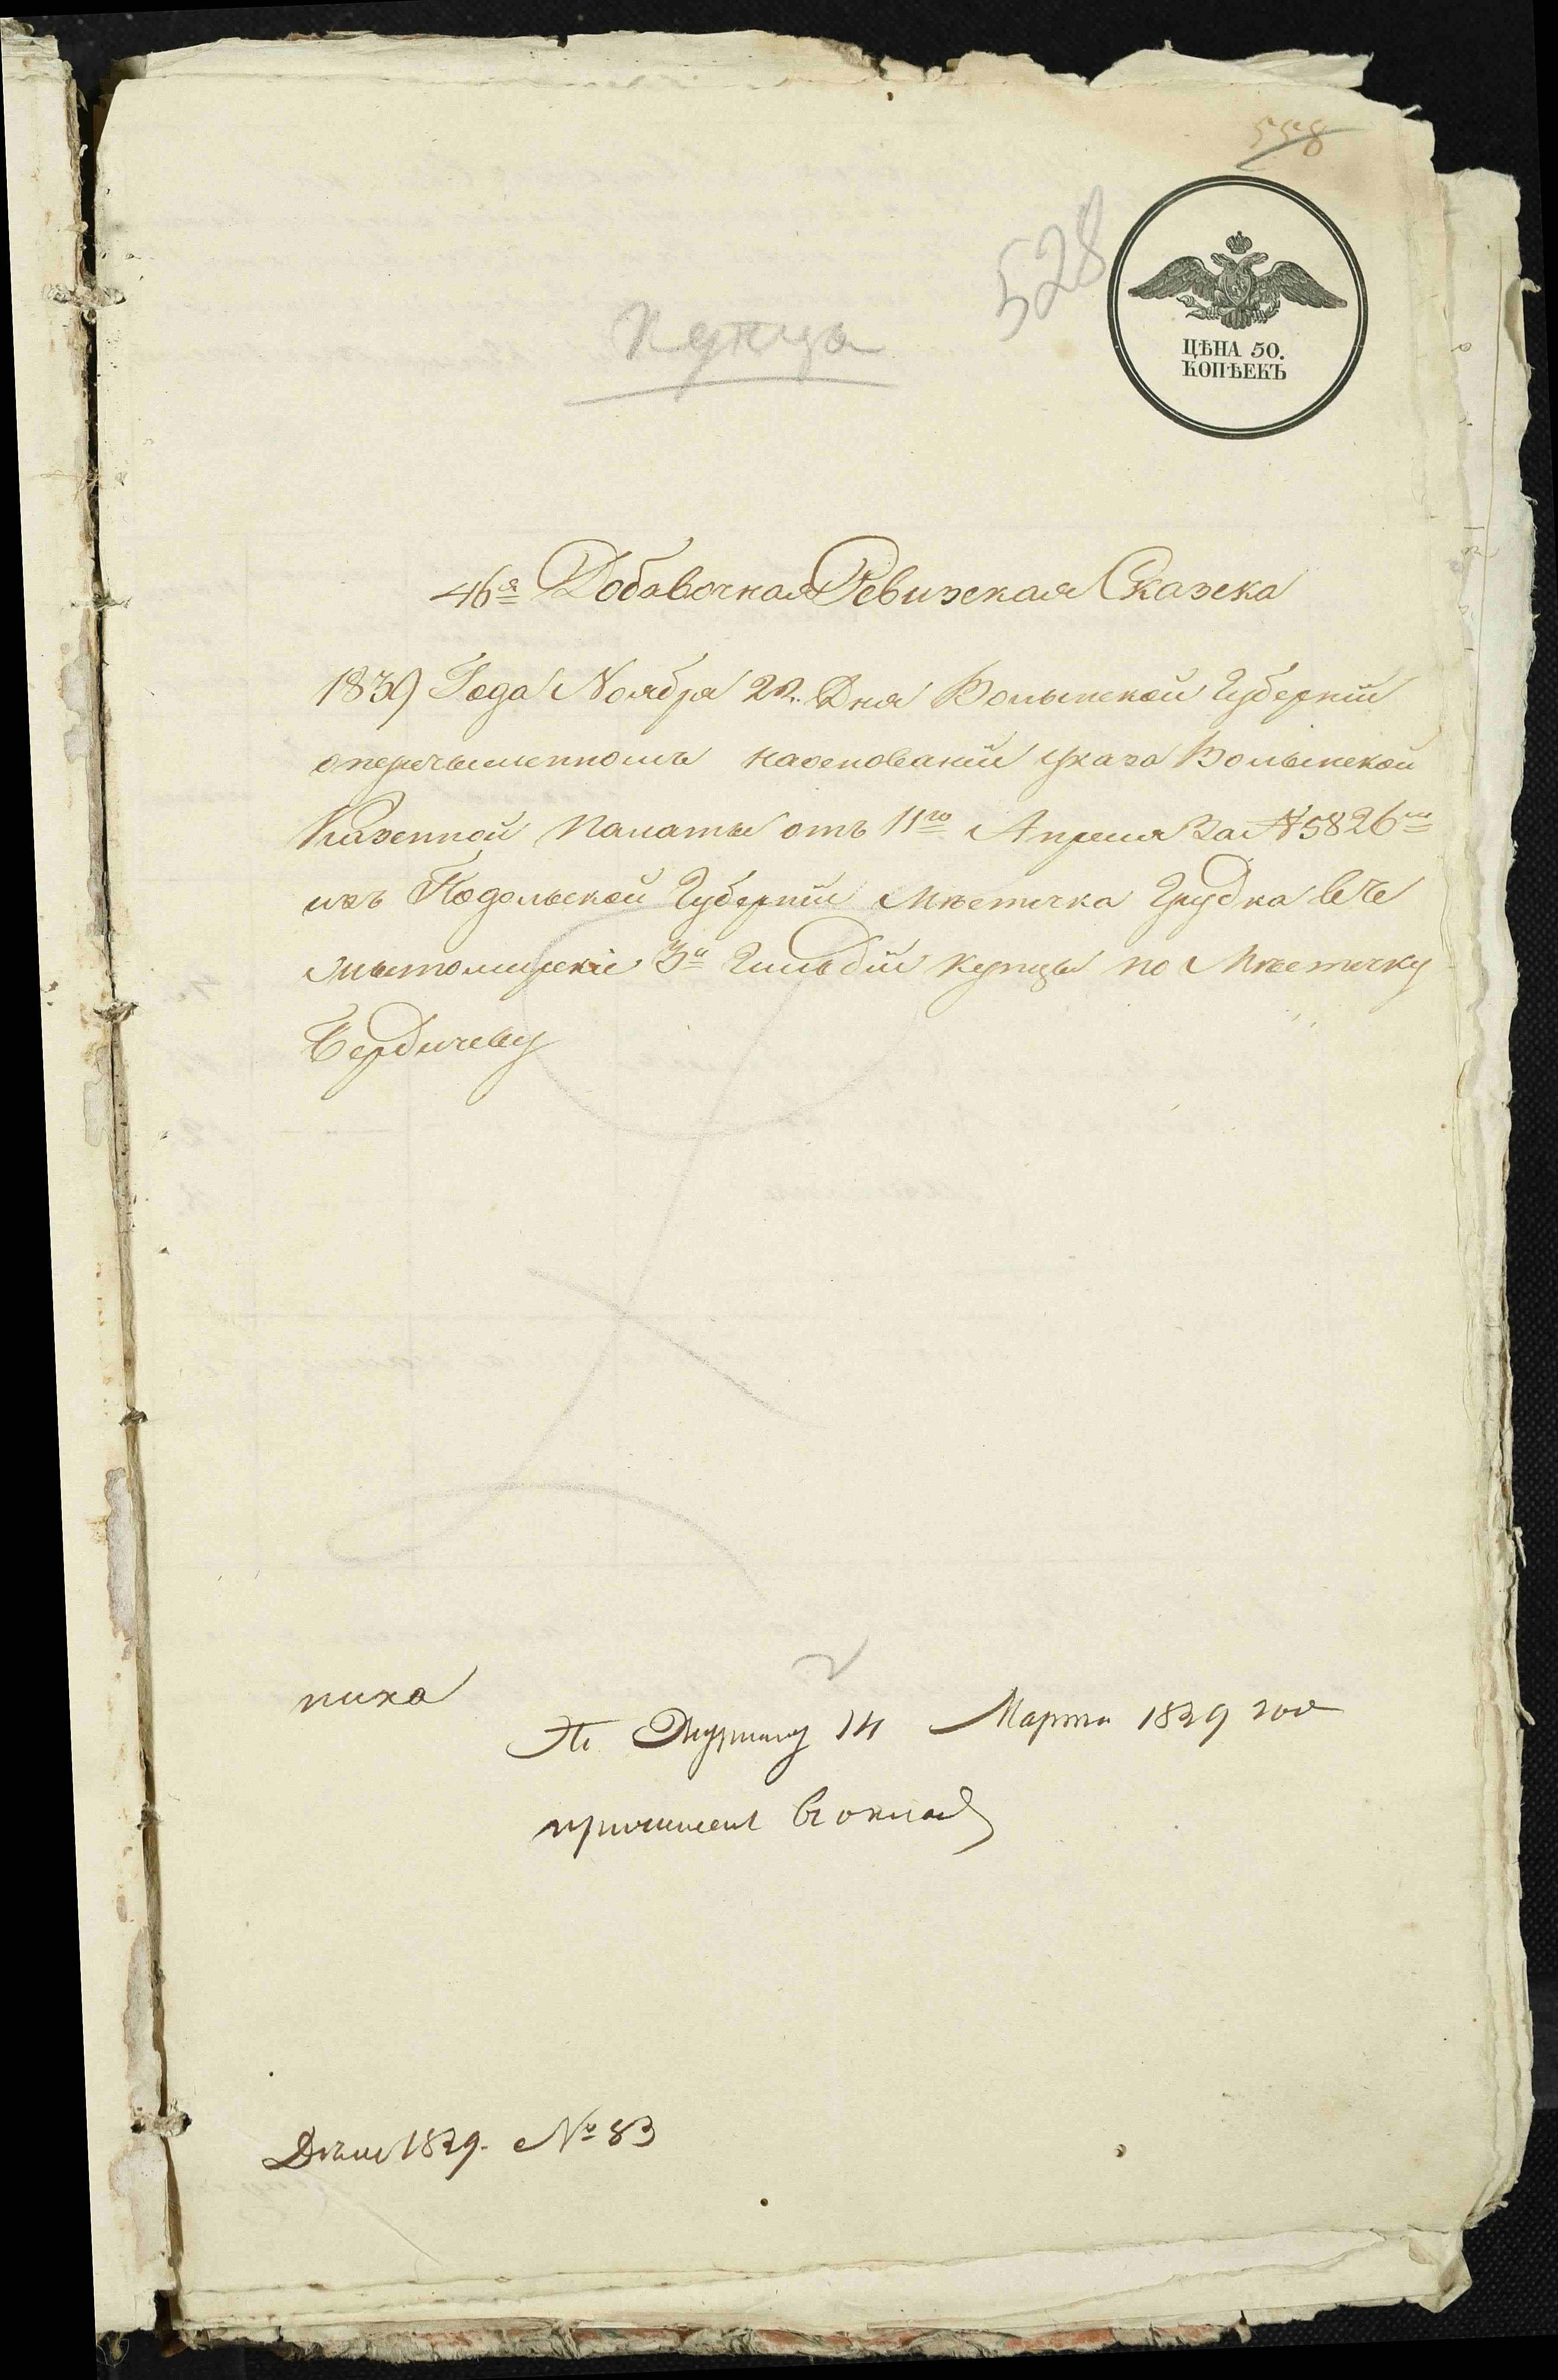 558
528
Купцы
ЦѢНА 50.
КОПѢЕКЪ
46я Добавочная Ревизская Сказка
1839 Года Ноября 22. Дня Волынской Губерніи
оперечысленномъ наоснованіи указа Волынской
Казенной Палаты отъ 11го Апреля За №5826мъ
изъ Подольской Губерніи Мѣстечка Грудка вЧе
Житомирскіе 3й Гильдіи купцы по Мѣстечку
Бердичеву
По Журналу 14 Марта 1839 года
причислен в оклад
Дѣло 1839. № 83